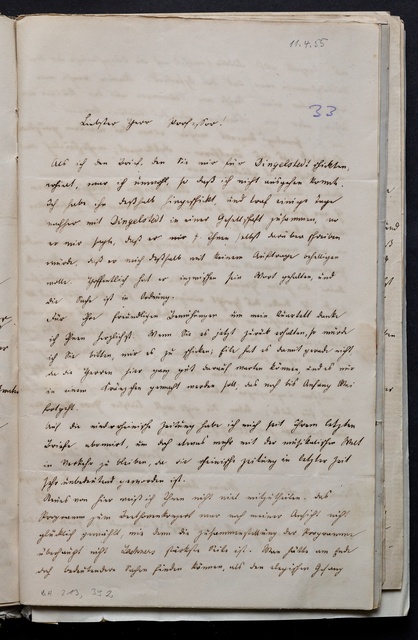 11.4.55
33
Liebster Herr Professor!
Als ich den Brief, den Sie mir für Dingelstedt schickten,
erhielt, war ich unwohl, so daß ich nicht ausgehen konnte.
Ich habe ihn deßhalb hingeschickt, und traf einige Tage
nachher mit Dingelstedt in einer Gesellschaft zusammen, wo
er mir sagte, daß er mir Ihnen selbst darüber schreiben
würde, daß er mich deßhalb mit keinem Auftrage behelligen
wolle. Hoffentlich hat er inzwischen sein Wort gehalten, und
die Sache ist in Ordnung.
Für Ihre freundlichen Bemühungen um mein Quartett danke
ich Ihnen herzlichst. Wenn Sie es jetzt zurück erhalten, so würde
ich Sie bitten, mir es zu schicken; Eile hat es damit gerade nicht
da die Herren hier ganz gut darauf warten können, und es nur
in einem Kränzchen gemacht werden soll, das noch bis Anfang Mai
fortgeht.
Auf die niederrheinische Zeitung habe ich mich seit Ihrem letzten
Briefe abonnirt, um doch etwas mehr mit der musikalischen Welt
in Verkehr zu bleiben, da die rheinische Zeitung in letzter Zeit
sehr unbedeutend geworden ist.
Neues von hier weiß ich Ihnen nicht viel mitzutheilen. Das
Programm zum war nach meiner Ansicht nicht
glücklich gewählt, wie denn die Zusammenstellung der Programme
überhaupt nicht Lachners stärkste Seite ist. Man hätte am Ende
doch bedeutendere Sachen finden können, als den elegischen Gesang